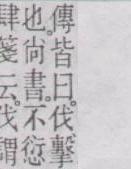 傳皆曰。伐擊
也。尙書。不愆
肆箋云。伐謂